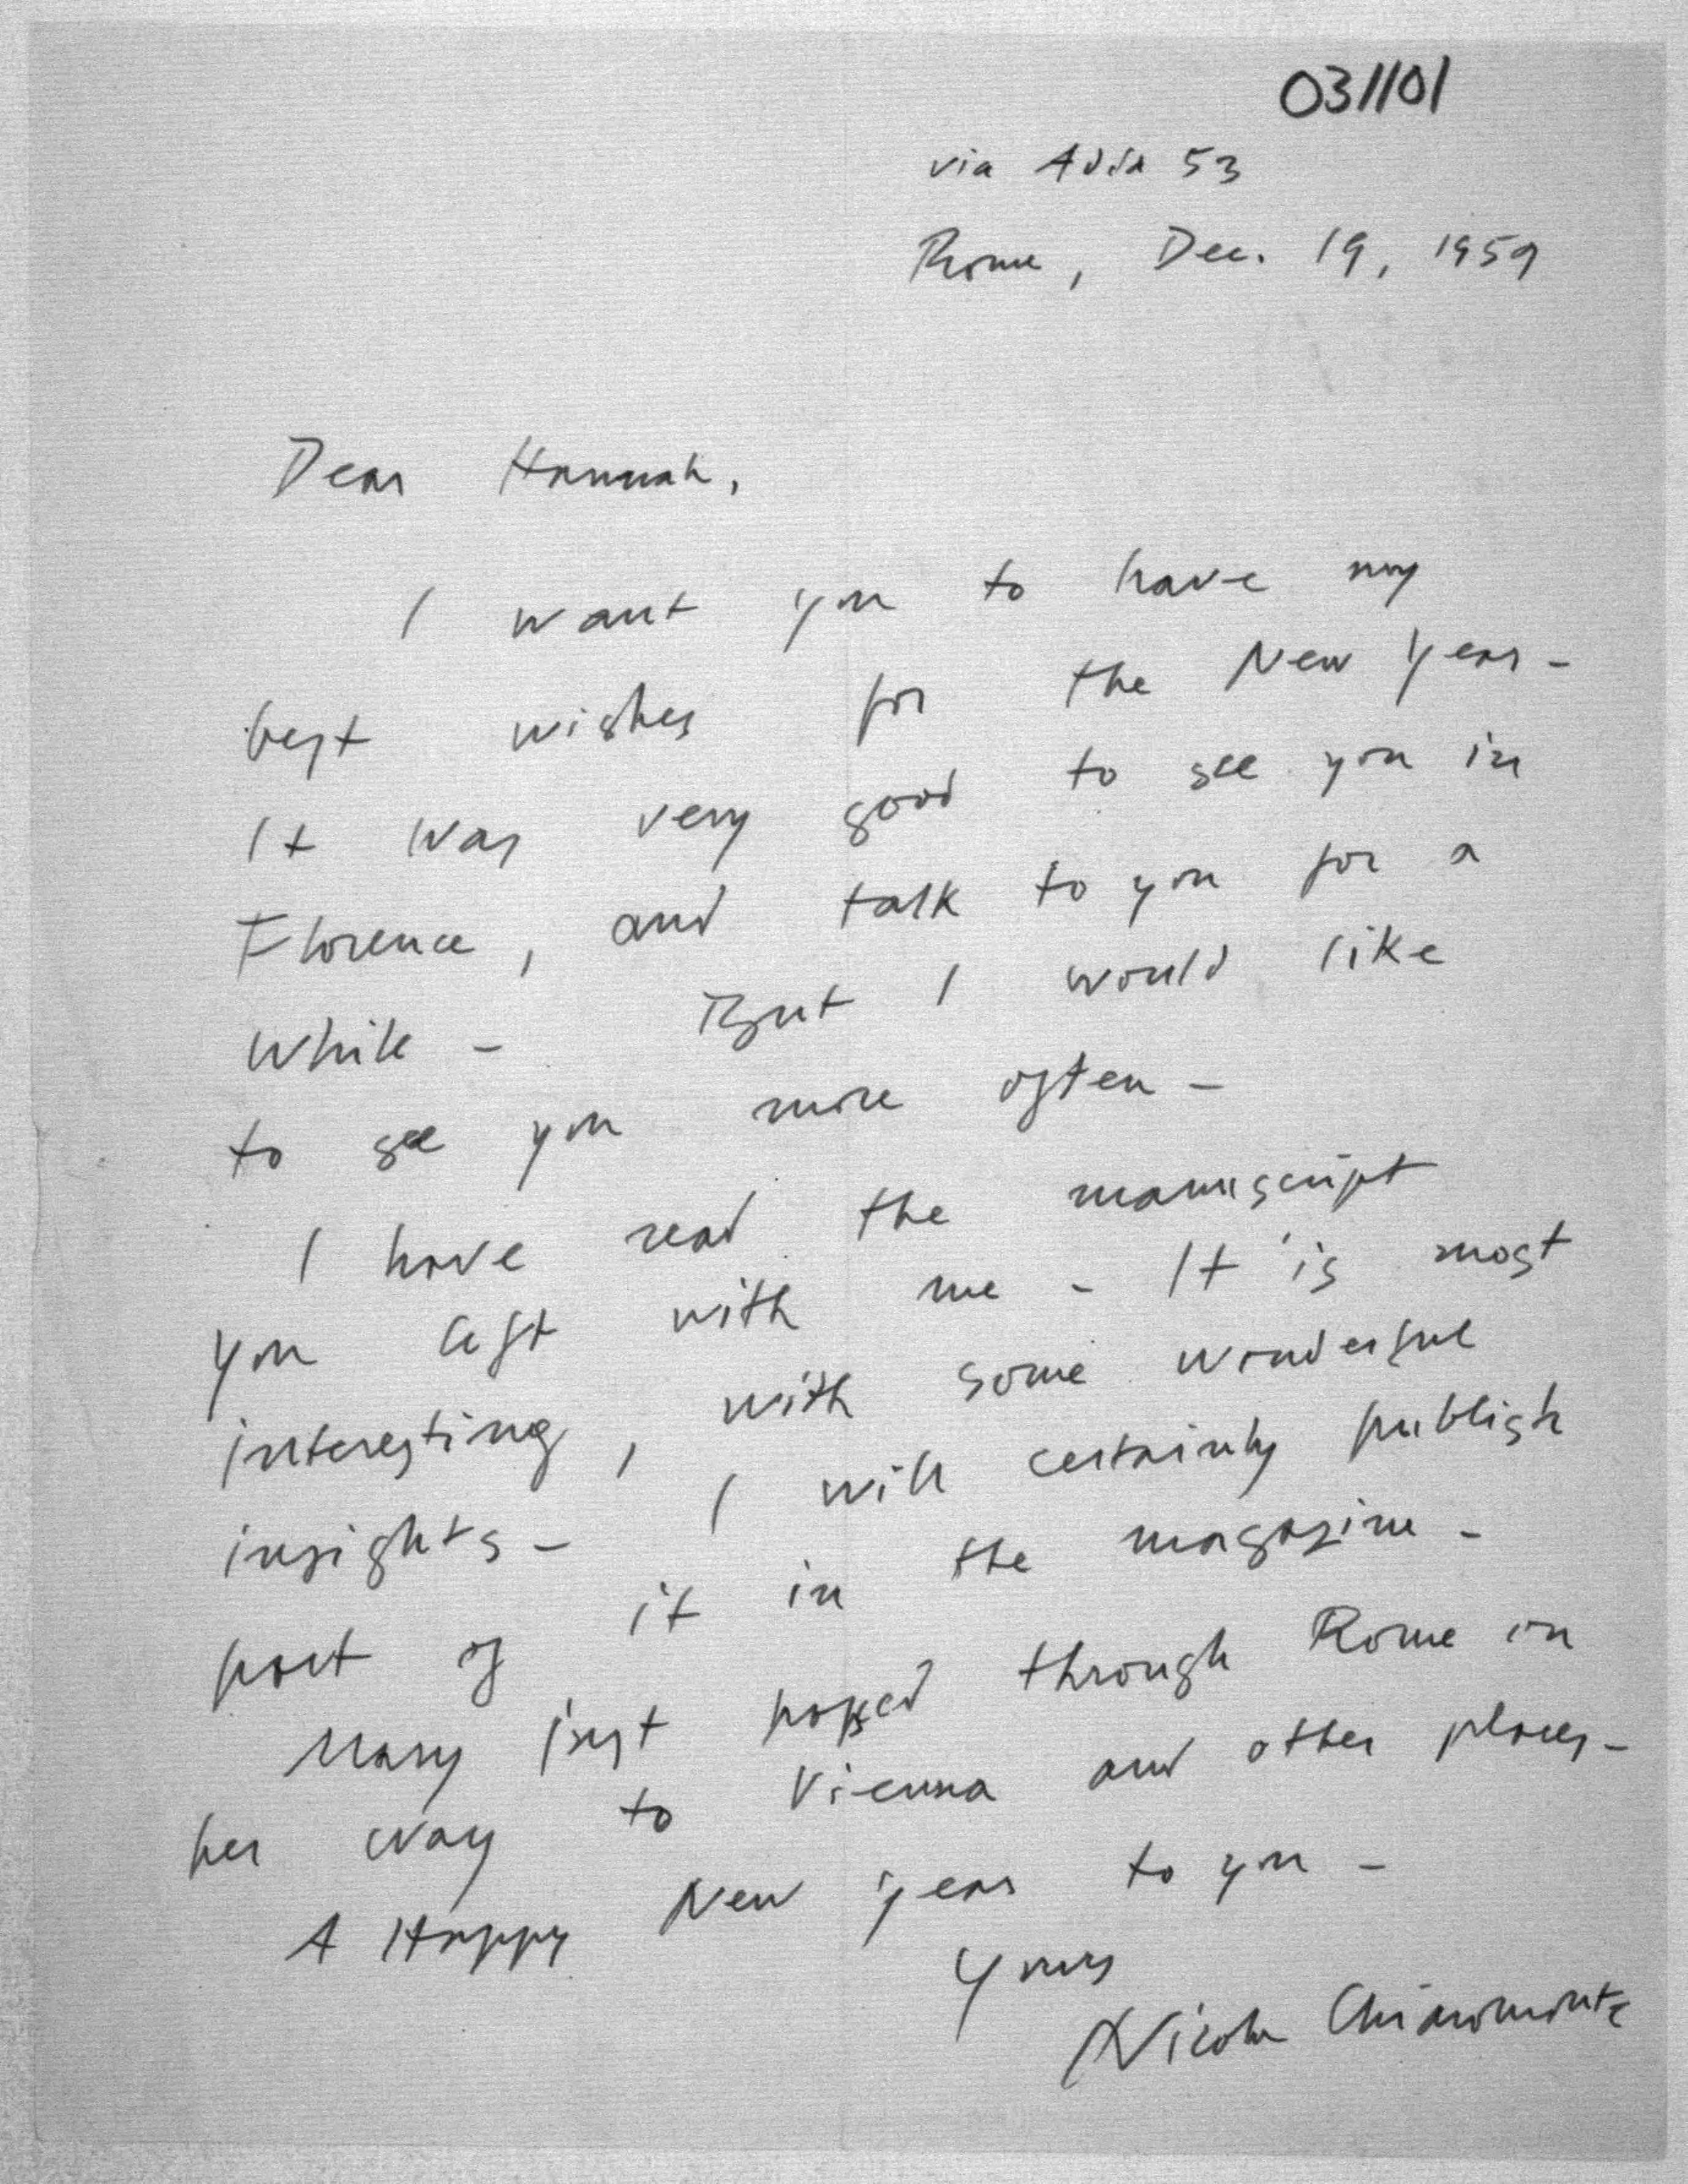 031101
via Adda 53
Rome, Dec. 19, 1959
Dear Hannah,
I want you to have my
best wishes for the New Year -
It was very good to see you in
Florence, and talk to you for a
while - But I would like
to see you more often -
I have read the manuscript
you left with me - It is most
interesting, with some wonderful
insights - I will certainly publish
part of it in the magazine -
Mary just passed through Rome on
her way to Vienna and other places -
A Happy New Year to you -
Yours
Nicola Chiaromonte